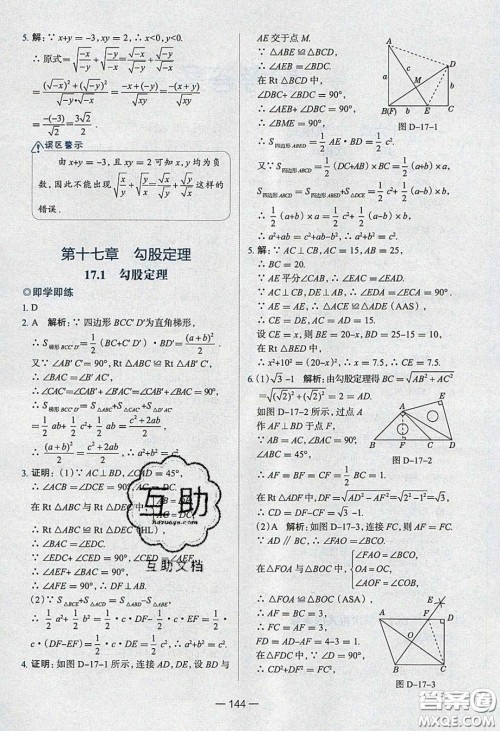 5. 解：∵ x+y= -3，xy=2，∴ x<0，y<0.
∴ 原式=√(-x)/√(-y)+√(-y)/√(-x)
=((√-x)²+(√-y)²)/(√-y·√-x)=(-x+(-y))/√xy=-(x+y)/√xy
=-(-3)/√2=3√2/2.
误区警示
由 x+y= -3，且 xy=2 可知 x，y 均为负
数，因此不能出现√(x/y)+√(y/x)=√x/√y+√y/√x 这样的
错误.
第十七章 勾股定理
17.1 勾股定理
即学即练
1. D
2. A 解析：∵ 四边形 BCC′D′为直角梯形，
∴ S梯形BCC′D′=1/2(BC+C′D′)·BD′=(a+b)²/2.
又∵ ∠AB′C′=90°，Rt△ABC≌Rt△AB′C′，
∴ ∠BAC=∠B′AC′.
∴ ∠CAC′=∠CAB′+∠B′AC′=∠CAB′+∠BAC=90°.
∴ S梯形BCC′D′=S△ABC+S△CAC′+S△D′AC′
=1/2ab+1/2c²+1/2ab=(c²+2ab)/2.
∴ (a+b)²/2=(c²+2ab)/2. ∴ a²+b²=c².
3. 证明：(1)∵ AC⊥BD，∠CAD=45°，
∴ ∠ACB=∠DCE=90°，AC=DC.
在 Rt△ABC 与 Rt△DEC
AC=DC，
∴ Rt△ABC≌Rt△DEC(HL).
∵ ∠EDC+∠CED=90°，∠CED=∠AEF，
∴ ∠AEF+∠BAC=90°. ∴ ∠AFE=90°. ∴ DF⊥AB.
(2)∵ S△BCE+S△ACD=S△ABD-S△ABE，
∴ 1/2a²+1/2b²=1/2·c·DF-1/2·c·EF=1/2·
c·(DF-EF)=1/2·c·DE=1/2c². ∴ a²+b²=c².
4. 证明：如图 D-17-1 所示，连接 AD，DE，设 BD 与
AE 交于点 M.
∵ △ABE≌△BCD，
∴ ∠AEB=∠BDC.
在 Rt△BCD 中，
∠DBC+∠BDC=90°，
∴ ∠AEB+∠DBC=90°，
∴ ∠BME=90°，
图 D-17-1
∴ S四边形ABED=1/2AE·BD=1/2c².
又∵ S四边形ABCD=1/2(DC+AB)×BC=1/2(a+b)×a，
∵ S四边形ABCD=S四边形ABED+S△DCE=1/2c²+1/2(a-b)×b，
∴ 1/2(a+b)×a=1/2c²+1/2(a-b)×b，
∴ a²+ab=c²+ab-b²，∴ a²+b²=c².
5. 解：∵ ∠C=90°，AC=15，AB=25，
∴ BC=20.
∵ AE 平分∠CAB，∴ ∠EAC=∠EAD.
∵ AC⊥CB，DE⊥AB，∴ ∠EDA=∠ECA=90°.
∵ AE=AE，∴ △ACE≌△ADE，
∴ CE=DE，AC=AD=15.
设 CE=x，则 BE=20-x，BD=25-15=10，
在 Rt△BED 中，
∴ x²+10²=(20-x)²，∴ x=7.5，∴ CE=7.5.
6. (1)√3-1 解析：由勾股定理得 BC=√(AB²+AC²)
=√((√2)²+(√2)²)=2. 如图 D-17-2 所示，过点 A
作 AF⊥BD 于点 F，
∴ ∠AFC=∠AFD=90°，
∴ AF=BF=CF=1/2BC=1.
图 D-17-2
在 Rt△ADF 中，DF=√(AD²-AF²)=√(2²-1²)=√3，
∴ CD=√3-1.
(2)A 解析：如图 D-17-3，连接 FC，则 AF=FC.
∵ AD∥BC，∴ ∠FAO=∠BCO.
在△FOA 与△BOC 中，
∠FAO=∠BCO，
OA=OC，
∠AOF=∠COB，
∴ △FOA≌△BOC(ASA)，
∴ AF=BC=3，
∴ FC=AF=3，
FD=AD-AF=4-3=1.
在△FDC 中，∵ ∠D=90°，
∴ CD²+DF²=FC²，
图 D-17-3
互助
互助文档
144
答案圈
MXQE.COM